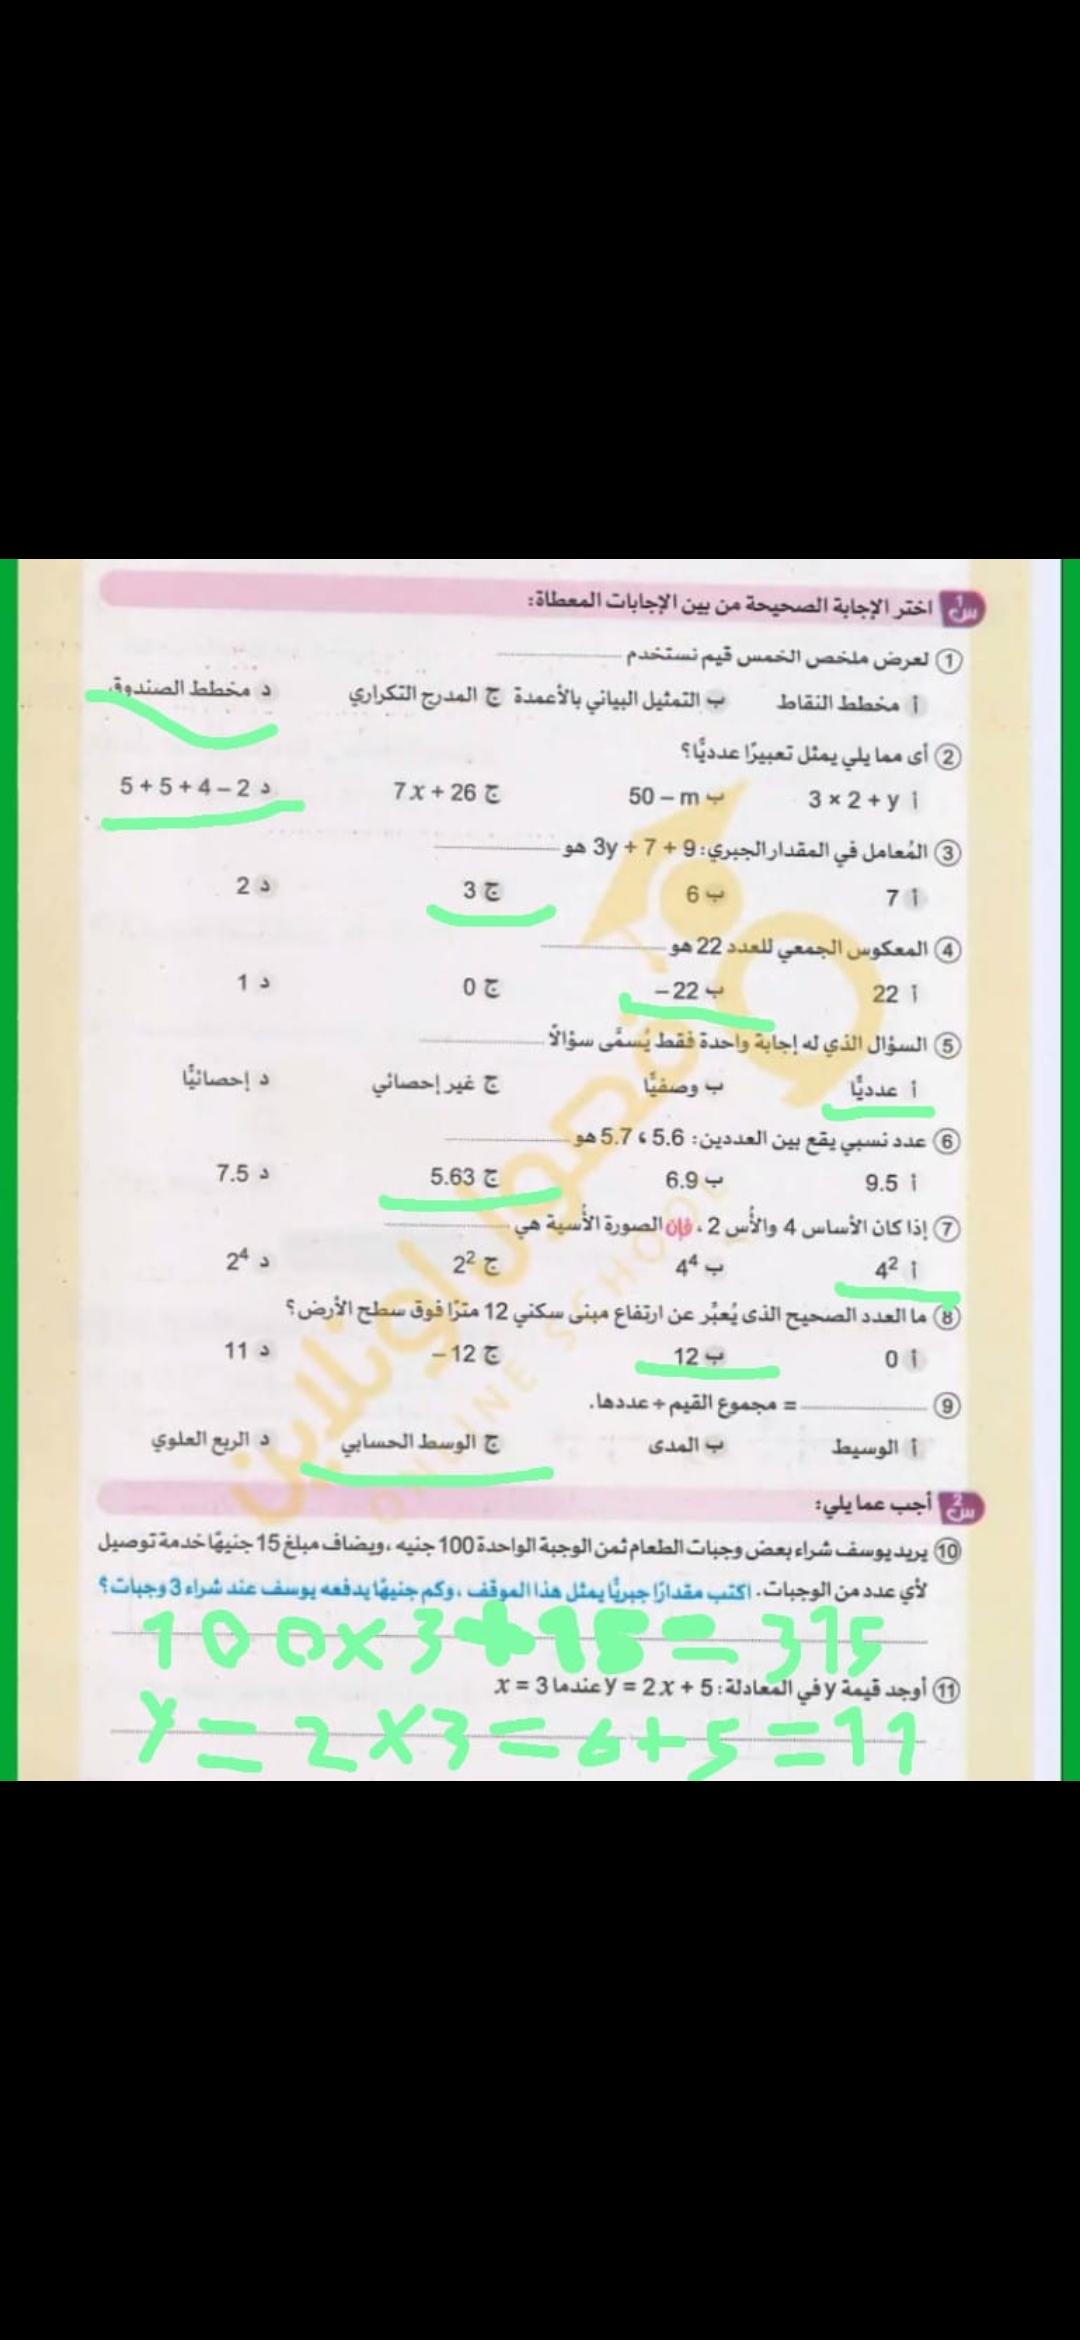 س1 اختر الإجابة الصحيحة من بين الإجابات المعطاة:
1 لعرض ملخص الخمس قيم نستخدم
أ مخطط النقاط ب التمثيل البياني بالأعمدة ج المدرج التكراري د مخطط الصندوق
2 أى مما يلي يمثل تعبيرًا عدديًّا؟
أ 3 × 2 + y ب 50 – m ج 7x + 26 د 5 + 5 + 4 – 2
3 المُعامل في المقدار الجبري: 3y + 7 + 9 هو
أ 7 ب 6 ج 3 د 2
4 المعكوس الجمعي للعدد 22 هو
أ 22 ب – 22 ج 0 د 1
5 السؤال الذي له إجابة واحدة فقط يُسمَّى سؤالًا
أ عدديًّا ب وصفيًّا ج غير إحصائي د إحصائيًّا
6 عدد نسبي يقع بين العددين: 5.6 ، 5.7 هو
أ 9.5 ب 6.9 ج 5.63 د 7.5
7 إذا كان الأساس 4 والأُس 2 ، فإن الصورة الأُسية هي
أ 4² ب 4⁴ ج 2² د 2⁴
8 ما العدد الصحيح الذى يُعبِّر عن ارتفاع مبنى سكني 12 مترًا فوق سطح الأرض؟
أ 0 ب 12 ج – 12 د 11
9 = مجموع القيم ÷ عددها.
أ الوسيط ب المدى ج الوسط الحسابي د الربع العلوي
س2 أجب عما يلي:
10 يريد يوسف شراء بعض وجبات الطعام ثمن الوجبة الواحدة 100 جنيه ، ويضاف مبلغ 15 جنيهًا خدمة توصيل
لأي عدد من الوجبات. اكتب مقدارًا جبريًّا يمثل هذا الموقف ، وكم جنيهًا يدفعه يوسف عند شراء 3 وجبات؟
100×3+15=315
11 أوجد قيمة y في المعادلة: y = 2x + 5 عندما x = 3
y=2×3=6+5=11
فصول اونلاين
ONLINE SCHOOL